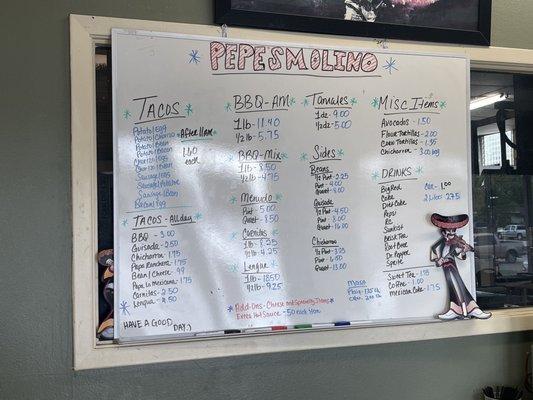 PEPESMOLINO
TACOS
Potato/Egg
Potato/Chorizo
Potato/Bean
Potato/Bacon
Chorizo/Egg
Chorizo/Bean
Sausage/Egg
Sausage/Potato
Sausage/Bean
Bacon/Egg
After 11am
1.60
each
TACOS - All day
BBQ - 3.00
Guisada - 2.50
Chicharron - 1.75
Papa Ranchera - 1.75
Bean/Cheese - .99
Papa La Mexicana - 1.75
Carnitas - 2.50
Lengua - 4.50
HAVE A GOOD DAY :)
BBQ-AM
1lb - 11.40
1/2 lb - 5.75
BBQ-Mix
1lb - 8.50
1/2 lb - 4.75
Menudo
Pint - 5.00
Quart - 8.50
Carnitas
1lb - 8.25
1/2 lb - 4.25
Lengua
1lb - 18.50
1/2 lb - 9.25
Tamales
1dz - 9.00
1/2 dz - 5.00
Sides
Beans
1/2 Pint - 2.25
Pint - 4.00
Quart - 6.00
Guisada
1/2 Pint - 4.50
Pint - 8.00
Quart - 16.00
Chicharron
1/2 Pint - 3.25
Pint - 6.50
Quart - 13.00
Misc. Items
Avocados - 1.50
Flour Tortillas - 2.00
Corn Tortillas - 1.35
Chicharron - 3.00 bag
DRINKS
Big Red
Coke
Diet Coke
Pepsi
RC
Sunkist
Brisk Tea
Root Beer
Dr. Pepper
Sprite
Can - 1.00
2 Liters 2.75
Sweet Tea - 1.75
Coffee - 1.00
Mexican Coke - 1.75
Masa
Add-Ons - Cheese and Specialty Items
Extra Hot Sauce - .50 each item